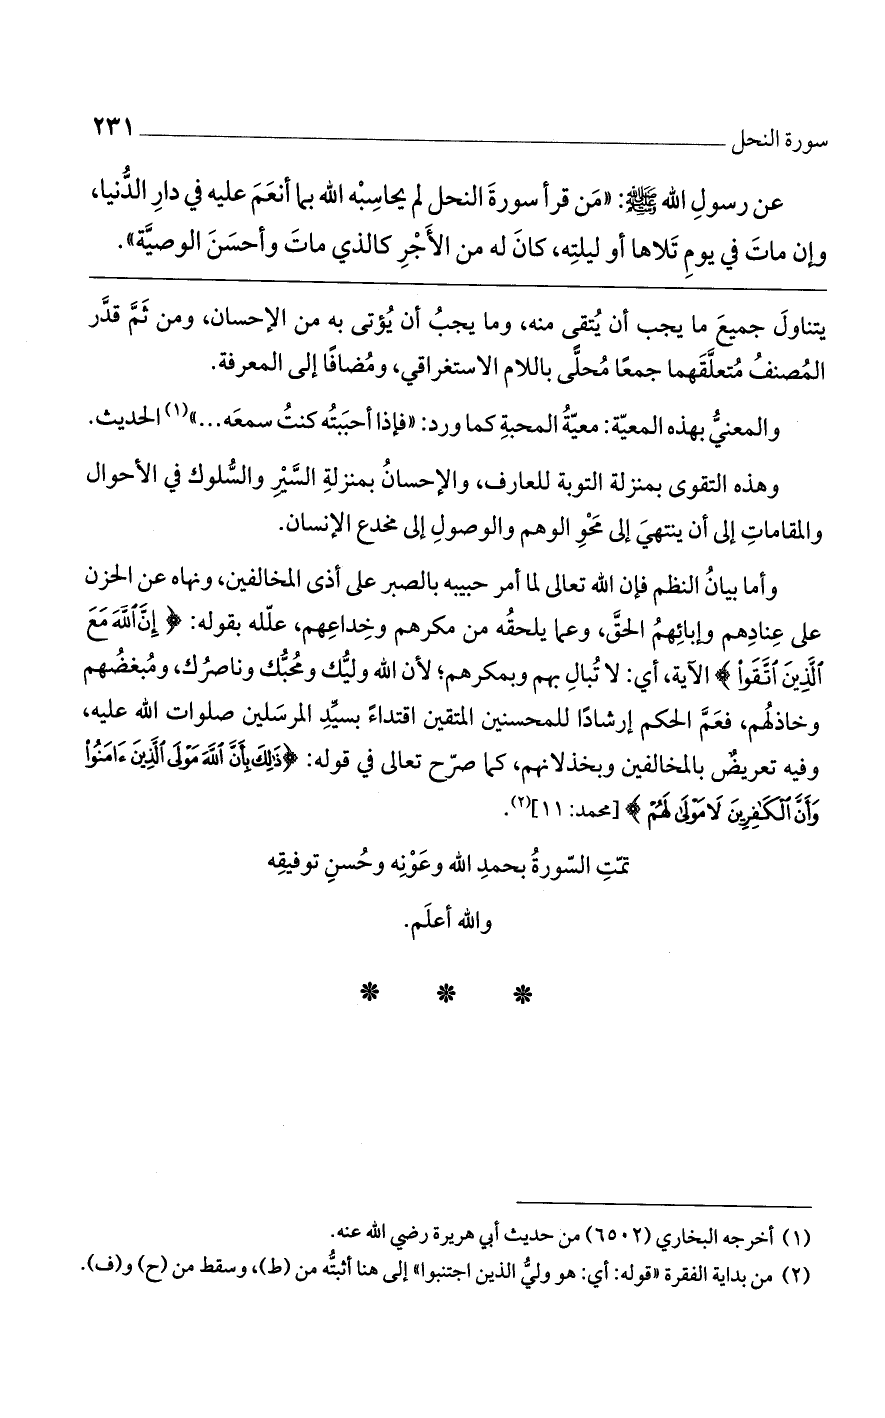 سورة النحل ٢٣١
عن رسولِ الله ﷺ: «مَن قرأ سورةَ النحل لم يحاسِبْه الله بما أنعَمَ عليه في دارِ الدُّنيا،
وإن ماتَ في يومِ تَلاها أو ليلتِه، كانَ له من الأَجْرِ كالذي ماتَ وأحسَنَ الوصيَّة».
يتناولَ جميعَ ما يجب أن يُتقى منه، وما يجبُ أن يُؤتى به من الإحسان، ومن ثَمَّ قدَّر
المُصنفُ مُتعلَّقَهما جمعًا مُحلًّى باللام الاستغراقي، ومُضافًا إلى المعرفة.
والمعنيُّ بهذه المعيّة: معيّةُ المحبةِ كما ورد: «فإذا أحبَبتُه كنتُ سمعَه...»(١) الحديث.
وهذه التقوى بمنزلة التوبة للعارف، والإحسانُ بمنزلةِ السَّيْرِ والسُّلوك في الأحوال
والمقاماتِ إلى أن ينتهيَ إلى مَحْوِ الوهم والوصولِ إلى مخدع الإنسان.
وأما بيانُ النظم فإن الله تعالى لما أمر حبيبه بالصبر على أذى المخالفين، ونهاه عن الحزن
على عِنادِهم وإبائِهمُ الحقَّ، وعما يلحقُه من مكرهم وخِداعِهم، علّله بقوله: ﴿إِنَّ ٱللَّهَ مَعَ
ٱلَّذِينَ ٱتَّقَوا۟﴾ الآية، أي: لا تُبالِ بهم وبمكرهم؛ لأن الله وليُّك ومُحبُّك وناصرُك، ومُبغضُهم
وخاذلُهم، فعَمَّ الحكم إرشادًا للمحسنين المتقين اقتداءً بسيِّدِ المرسَلين صلوات الله عليه،
وفيه تعريضٌ بالمخالفين وبخذلانهم، كما صرّح تعالى في قوله: ﴿ذَٰلِكَ بِأَنَّ ٱللَّهَ مَوْلَى ٱلَّذِينَ ءَامَنُوا۟
وَأَنَّ ٱلْكَٰفِرِينَ لَا مَوْلَىٰ لَهُمْ﴾ [محمد: ١١](٢).
تمّتِ السّورةُ بحمدِ الله وعَوْنِه وحُسنِ توفيقِه
والله أعلَم.
* * *
(١) أخرجه البخاري (٦٥٠٢) من حديث أبي هريرة رضي الله عنه.
(٢) من بداية الفقرة «قوله: أي: هو وليُّ الذين اجتنبوا» إلى هنا أثبتُّه من (ط)، وسقط من (ح) و(ف).